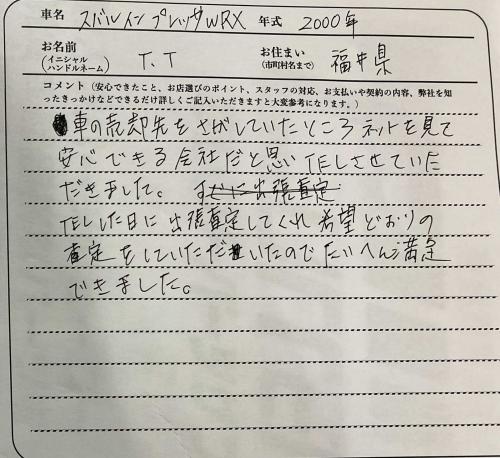 車名 スバルインプレッサWRX 年式 2000年
お名前 (イニシャル ハンドルネーム) T.T お住まい (市町村名まで) 福井県
コメント(安心できたこと、お店選びのポイント、スタッフの対応、お支払いや契約の内容、弊社を知
ったきっかけなどできるだけ詳しくご記入いただきますと大変参考になります。)
車の売却先をさがしていたところネットを見て
安心できる会社だと思いTELしさせていた
だきました。 すぐに出張査定
TELした日に出張査定してくれ希望どおりの
査定をしていただいたのでたいへん満足
できました。